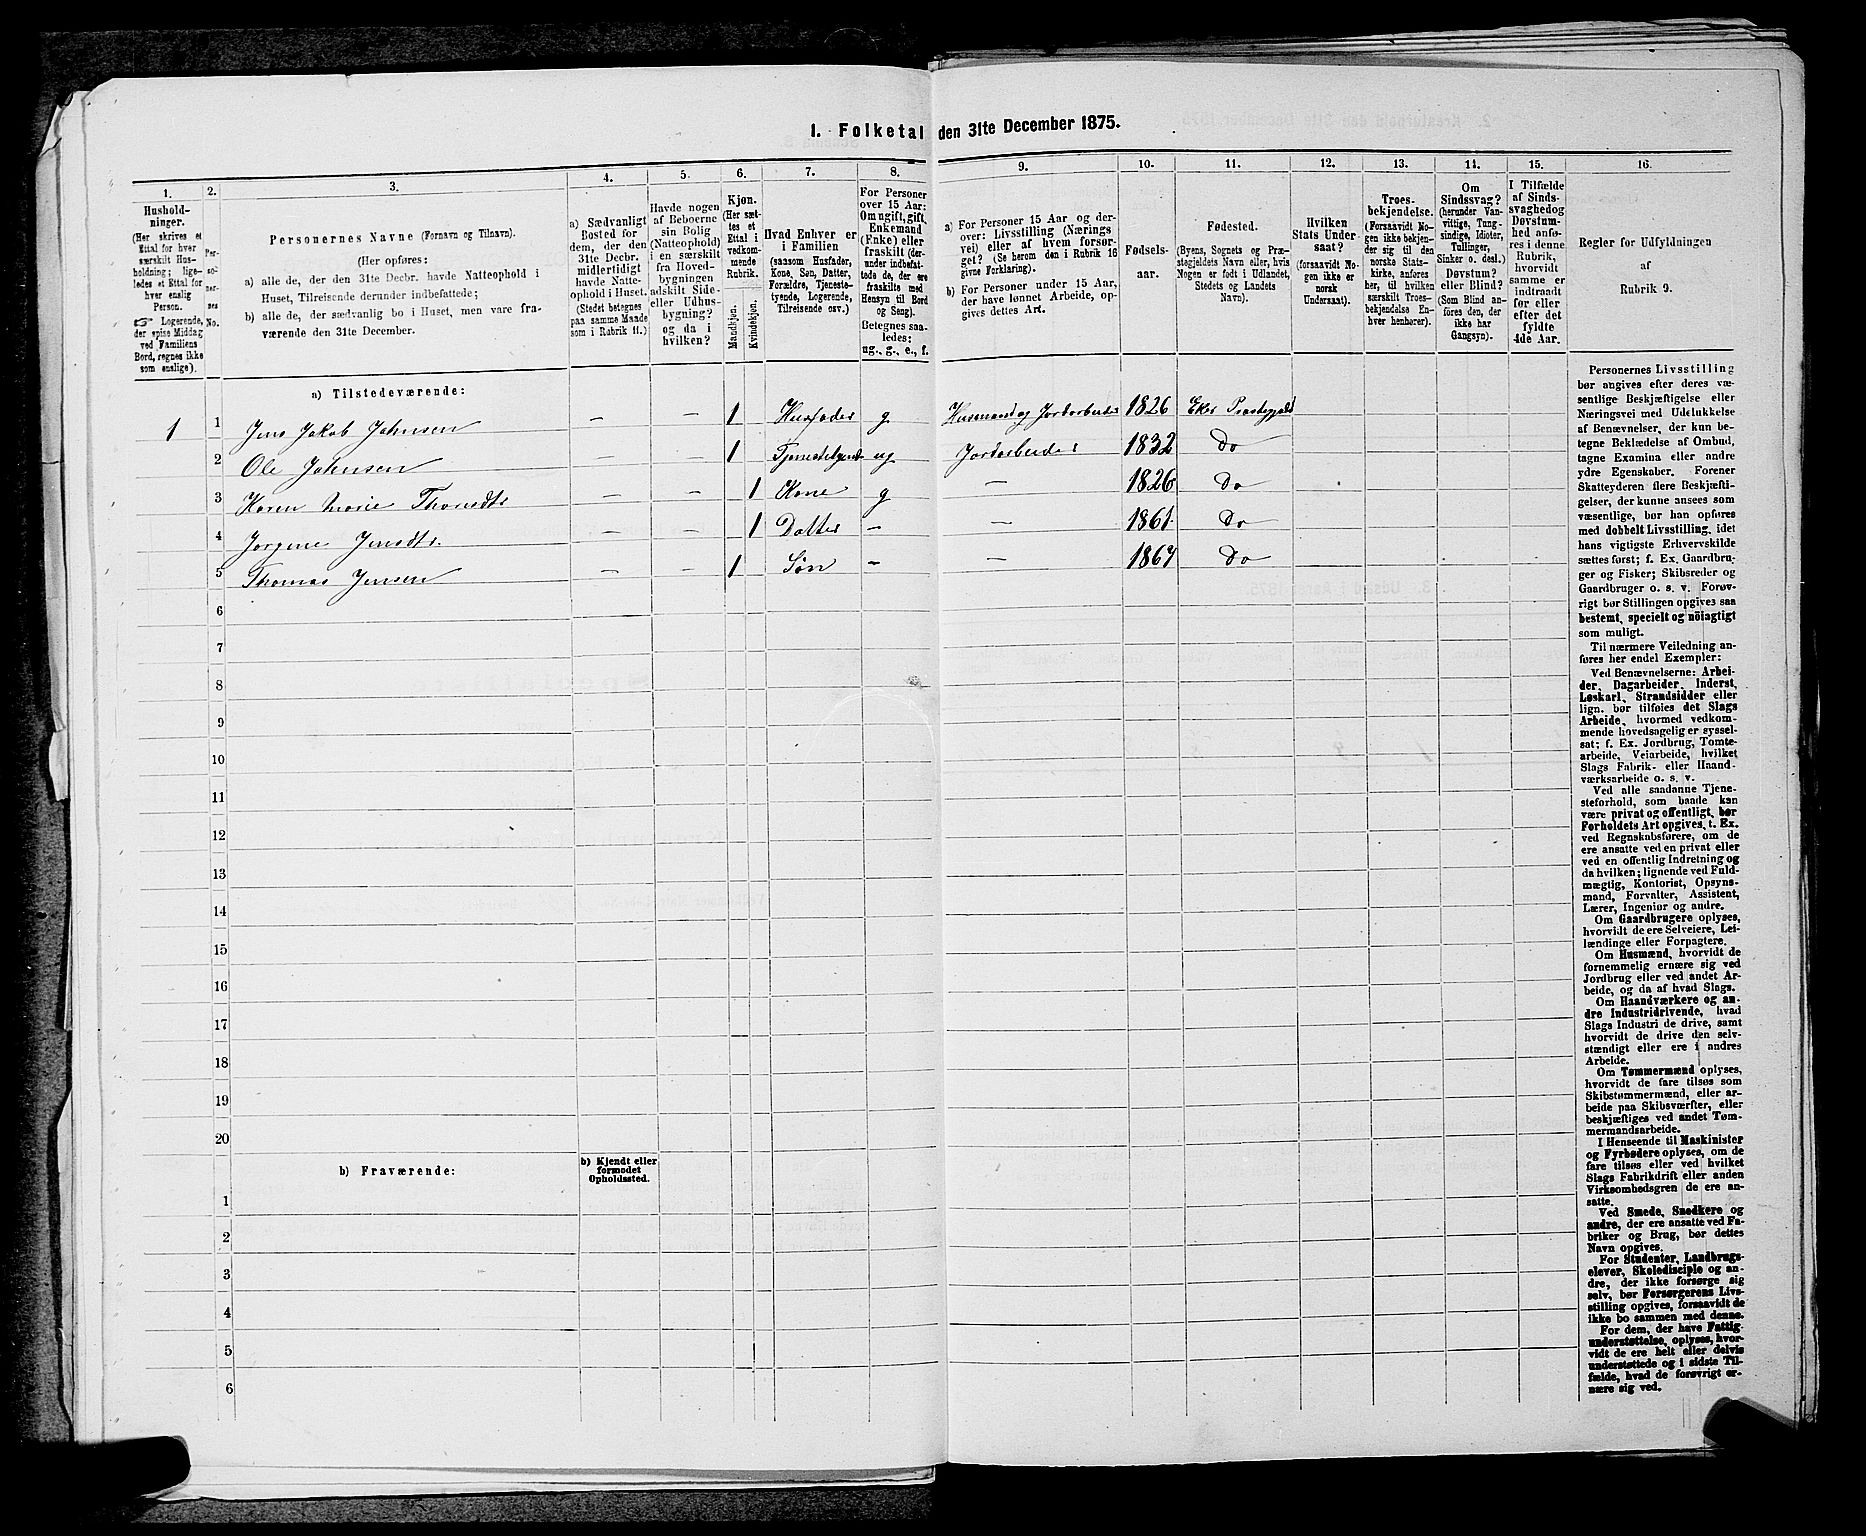 1. Folketal den 31te December 1875.
1. 2. 3. 4. 5. 6. 7. 8. 9. 10. 11. 12. 13. 14. 15. 16.
Hushold-
ninger.
(Her skrives et
Ettal for hver
særskilt Hus-
holdning; lige-
ledes et Ettal for
hver enslig
Person.
Logerende,
der spise Middag
ved Familiens
Bord, regnes ikke
som enslige).
Per-
so-
ner-
nes
No.
Personernes Navne (Fornavn og Tilnavn).
(Her opføres:
a) alle de, der den 31te Decbr. havde Natteophold i
Huset, Tilreisende derunder indbefattede;
b) alle de, der sædvanlig bo i Huset, men vare fra-
værende den 31te December.
a) Sædvanligt
Bosted for
dem, der den
31te Decbr.
midlertidigt
havde Natte-
ophold i Huset.
(Stedet betegnes
paa samme Maade
som i Rubrik 11.)
Havde nogen
af Beboerne
sin Bolig
(Natteophold)
i en særskilt
fra Hoved-
bygningen
adskilt Side-
eller Udhus-
bygning?
og da i
hvilken?
Kjøn.
(Her sæt-
tes et
Ettal i
vedkom-
mende
Rubrik.
Mandkjøn.
Kvindekjøn.
Hvad Enhver er
i Familien
(saasom Husfader,
Kone, Søn, Datter,
Forældre, Tjeneste-
tyende, Logerende,
Tilreisende osv.)
For Personer
over 15 Aar:
Om ugift, gift,
Enkemand
(Enke) eller
fraskilt (der-
under indbefat-
tede de, der ere
fraskilte med
Hensyn til Bord
og Seng).
Betegnes saa-
ledes:
ug., g., e., f.
a) For Personer 15 Aar og der-
over: Livsstilling (Nærings-
vei) eller af hvem forsør-
get? (Se herom den i Rubrik 16
givne Forklaring).
b) For Personer under 15 Aar,
der have lønnet Arbeide, op-
gives dettes Art.
Fødsels-
aar.
Fødested.
(Byens, Sognets og Præ-
stegjeldets Navn eller, hvis
Nogen er født i Udlandet,
Stedets og Landets
Navn).
Hvilken
Stats Under-
saat?
(forsaavidt No-
gen ikke er
norsk
Undersaat).
Troes-
bekjendelse.
(Forsaavidt No-
gen ikke bekjen-
der sig til den
norske Stats-
kirke, anføres
her, til hvilken
særskilt Troes-
bekjendelse En-
hver henhører).
Om
Sindssvag?
(herunder Van-
vittige, Tung-
sindige, Idioter,
Tullinger,
Sinker o. desl.)
Døvstum?
eller Blind?
(Som Blind an-
føres den, der
ikke har
Gangsyn).
I Tilfælde
af Sinds-
svaghed og
Døvstum-
hed anfø-
res i denne
Rubrik,
hvorvidt
samme er
indtraadt
før eller
efter det
fyldte
4de Aar.
Regler for Udfyldningen
af
Rubrik 9.
a) Tilstedeværende:
1 1 Jens Jakob Johnsen — — 1 Husfader g Husmand og Jordarbeider 1826 Eker Præstegjeld
2 Ole Johnsen — — 1 Tjenestetyende ug Jordarbeider 1832 Do
3 Karen Marie Thorsdtr — — 1 Kone g — 1826 Do
4 Jørgine Jensdtr. — — 1 Datter — — 1861 Do
5 Thomas Jensen — — 1 Søn — — 1867 Do
6
7
8
9
10
11
12
13
14
15
16
17
18
19
20
b) Fraværende:
b) Kjendt eller
formodet
Opholdssted.
1
2
3
4
5
6
Personernes Livsstilling
bør angives efter deres væ-
sentlige Beskjæftigelse eller
Næringsvei med Udelukkelse
af Benævnelser, der kun be-
tegne Beklædelse af Ombud,
tagne Examina eller andre
ydre Egenskaber. Forener
Skatteyderen flere Beskjæfti-
gelser, der kunne ansees som
væsentlige, bør han opføres
med dobbelt Livsstilling, idet
hans vigtigste Erhvervskilde
sættes først; f. Ex. Gaardbru-
ger og Fisker; Skibsreder og
Gaardbruger o. s. v. Forøv-
rigt bør Stillingen opgives saa
bestemt, specielt og nöiagtigt
som muligt.
Til nærmere Veiledning an-
føres her endel Exempler:
Ved Benævnelserne: Arbei-
der, Dagarbeider, Inderst,
Løskarl, Strandsidder eller
lign. bør tilføies det Slags
Arbeide, hvormed vedkom-
mende hovedsagelig er syssel-
sat; f. Ex. Jordbrug, Tomte-
arbeide, Veiarbeide, hvilket
Slags Fabrik- eller Haand-
værksarbeide o. s. v.
Ved alle saadanne Tjene-
steforhold, som baade kan
være privat og offentligt, bør
Forholdets Art opgives, t. Ex.
ved Regnskabsførere, om de
ere ansatte ved en privat eller
ved en offentlig Indretning og
da hvilken; lignende ved Fuld-
mægtig, Kontorist, Opsyns-
mand, Forvalter, Assistent,
Lærer, Ingeniør og andre.
Om Gaardbrugere oplyses,
hvorvidt de ere Selveiere, Lei-
lændinge eller Forpagtere.
Om Husmænd, hvorvidt de
fornemmelig ernære sig ved
Jordbrug eller ved andet Ar-
beide, og da af hvad Slags.
Om Haandværkere og an-
dre Industridrivende, hvad
Slags Industri de drive, samt
hvorvidt de drive den selv-
stændigt eller ere i andres
Arbeide.
Om Tømmermænd oplyses,
hvorvidt de fare tilsøs som
Skibstømmermænd, eller ar-
beide paa Skibsværfter, eller
beskjæftiges ved andet Tøm-
mermandsarbeide.
I Henseende til Maskinister
og Fyrbødere oplyses, om de
fare tilsøs eller ved hvilket
Slags Fabrikdrift eller anden
Virksomhedsgren de ere an-
satte.
Ved Smede, Snedkere og
andre, der ere ansatte ved Fa-
briker og Brug, bør dettes
Navn opgives.
For Studenter, Landbrugs-
elever, Skoledisciple og an-
dre, der ikke forsørge sig
selv, bør Forsørgerens Livs-
stilling opgives, forsaavidt de
ikke bo sammen med denne.
For dem, der have Fattig-
understøttelse, oplyses, hvor-
vidt de ere helt eller delvis
understøttede og i sidste Til-
fælde, hvad de forøvrigt er-
nære sig ved.